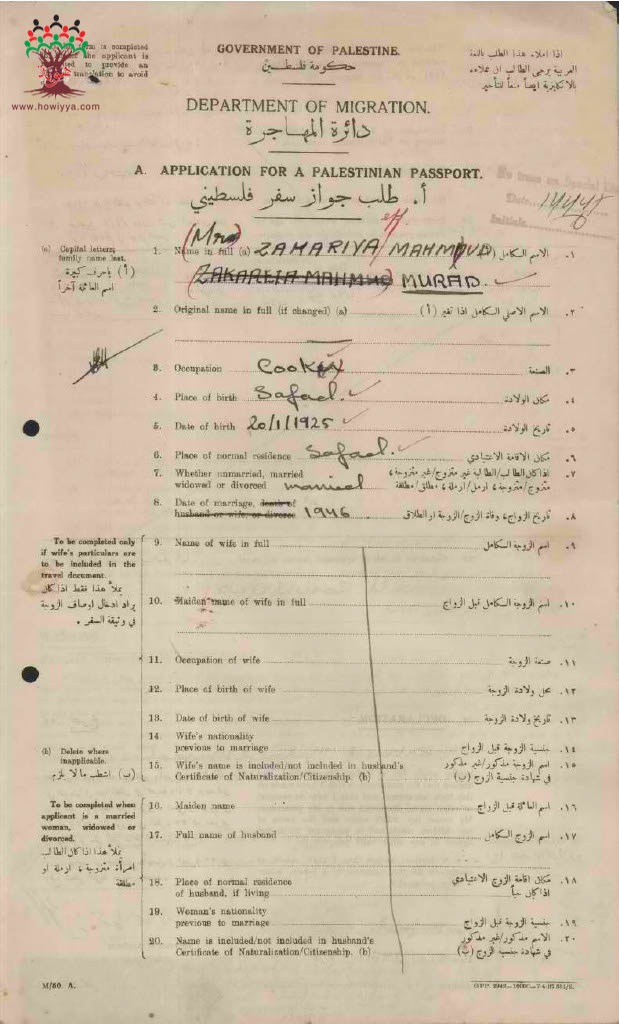 www.howiyya.com
is completed
the applicant is
to provide an
translation to avoid
GOVERNMENT OF PALESTINE.
حكومة فلسطين
اذا املاء هذا الطلب باللغة
العربية يرجى الطالب ان يملاءه
بالانكليزية ايضاً منعاً للتأخير
DEPARTMENT OF MIGRATION.
دائرة المهاجرة
Date
Initials
A. APPLICATION FOR A PALESTINIAN PASSPORT.
أ. طلب جواز سفر فلسطيني
(a) Capital letters; family name last.
(أ) باحرف كبيرة
اسم العائلة آخراً
1. Name in full (a) ZAHARIYA MAHMOUD الاسم الكامل (أ) .١
ZAKAREIA MAHMUD MURAD.
2. Original name in full (if changed) (a) الاسم الاصلي الكامل اذا تغير (أ) .٢
3. Occupation Cook الصنعة .٣
4. Place of birth Safad. مكان الولادة .٤
5. Date of birth 20/1/1925 تاريخ الولادة .٥
6. Place of normal residence Safad. مكان الاقامة الاعتيادي .٦
7. Whether unmarried, married اذا كان الطالب/الطالبة غير متزوج/غير متزوجة، .٧
widowed or divorced married متزوج/متزوجة، ارمل/ارملة، مطلق/مطلقة
8. Date of marriage, death of
husband or wife, or divorce 1946 تاريخ الزواج، وفاة الزوج/الزوجة او الطلاق .٨
To be completed only
if wife's particulars are
to be included in the
travel document.
يملأ هذا فقط اذا كان
يراد ادخال اوصاف الزوجة
في وثيقة السفر.
9. Name of wife in full اسم الزوجة الكامل .٩
10. Maiden name of wife in full اسم الزوجة الكامل قبل الزواج .١٠
11. Occupation of wife صنعة الزوجة .١١
12. Place of birth of wife محل ولادة الزوجة .١٢
13. Date of birth of wife تاريخ ولادة الزوجة .١٣
14. Wife's nationality
previous to marriage جنسية الزوجة قبل الزواج .١٤
(b) Delete where
inapplicable.
(ب) اشطب ما لا يلزم
15. Wife's name is included/not included in husband's اسم الزوجة مذكور/غير مذكور .١٥
Certificate of Naturalization/Citizenship. (b) في شهادة جنسية الزوج (ب)
To be completed when
applicant is a married
woman, widowed or
divorced.
يملأ هذا اذا كان الطالب
امرأة متزوجة، ارملة او
مطلقة
16. Maiden name اسم العائلة قبل الزواج .١٦
17. Full name of husband اسم الزوج الكامل .١٧
18. Place of normal residence مكان اقامة الزوج الاعتيادي .١٨
of husband, if living اذا كان حياً
19. Woman's nationality
previous to marriage جنسية الزوجة قبل الزواج .١٩
20. Name is included/not included in husband's الاسم مذكور/غير مذكور .٢٠
Certificate of Naturalization/Citizenship. (b) في شهادة جنسية الزوج (ب)
M/50 A.